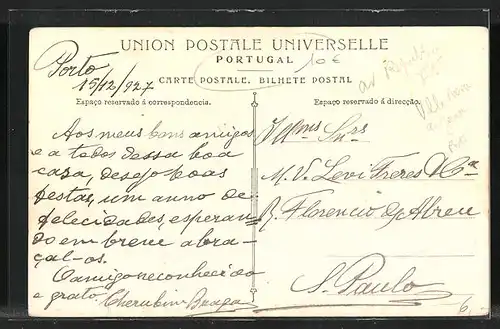 UNION POSTALE UNIVERSELLE
PORTUGAL
10€
CARTE POSTALE. BILHETE POSTAL
Porto
15/12/927
Espaço reservado á correspondencia.
Espaço reservado á direcção.
Aos meus bons amigos
e a todos dessa boa
casa, desejo boas
festas, um anno de
felecidades, esperan
do em breve abra-
çal-os.
O amigo reconhecido
e grato, Cherubim Braga
Illmos Snrs
M. V. Levi Freres & Cia
R. Florencio de Abreu
S. Paulo
6.